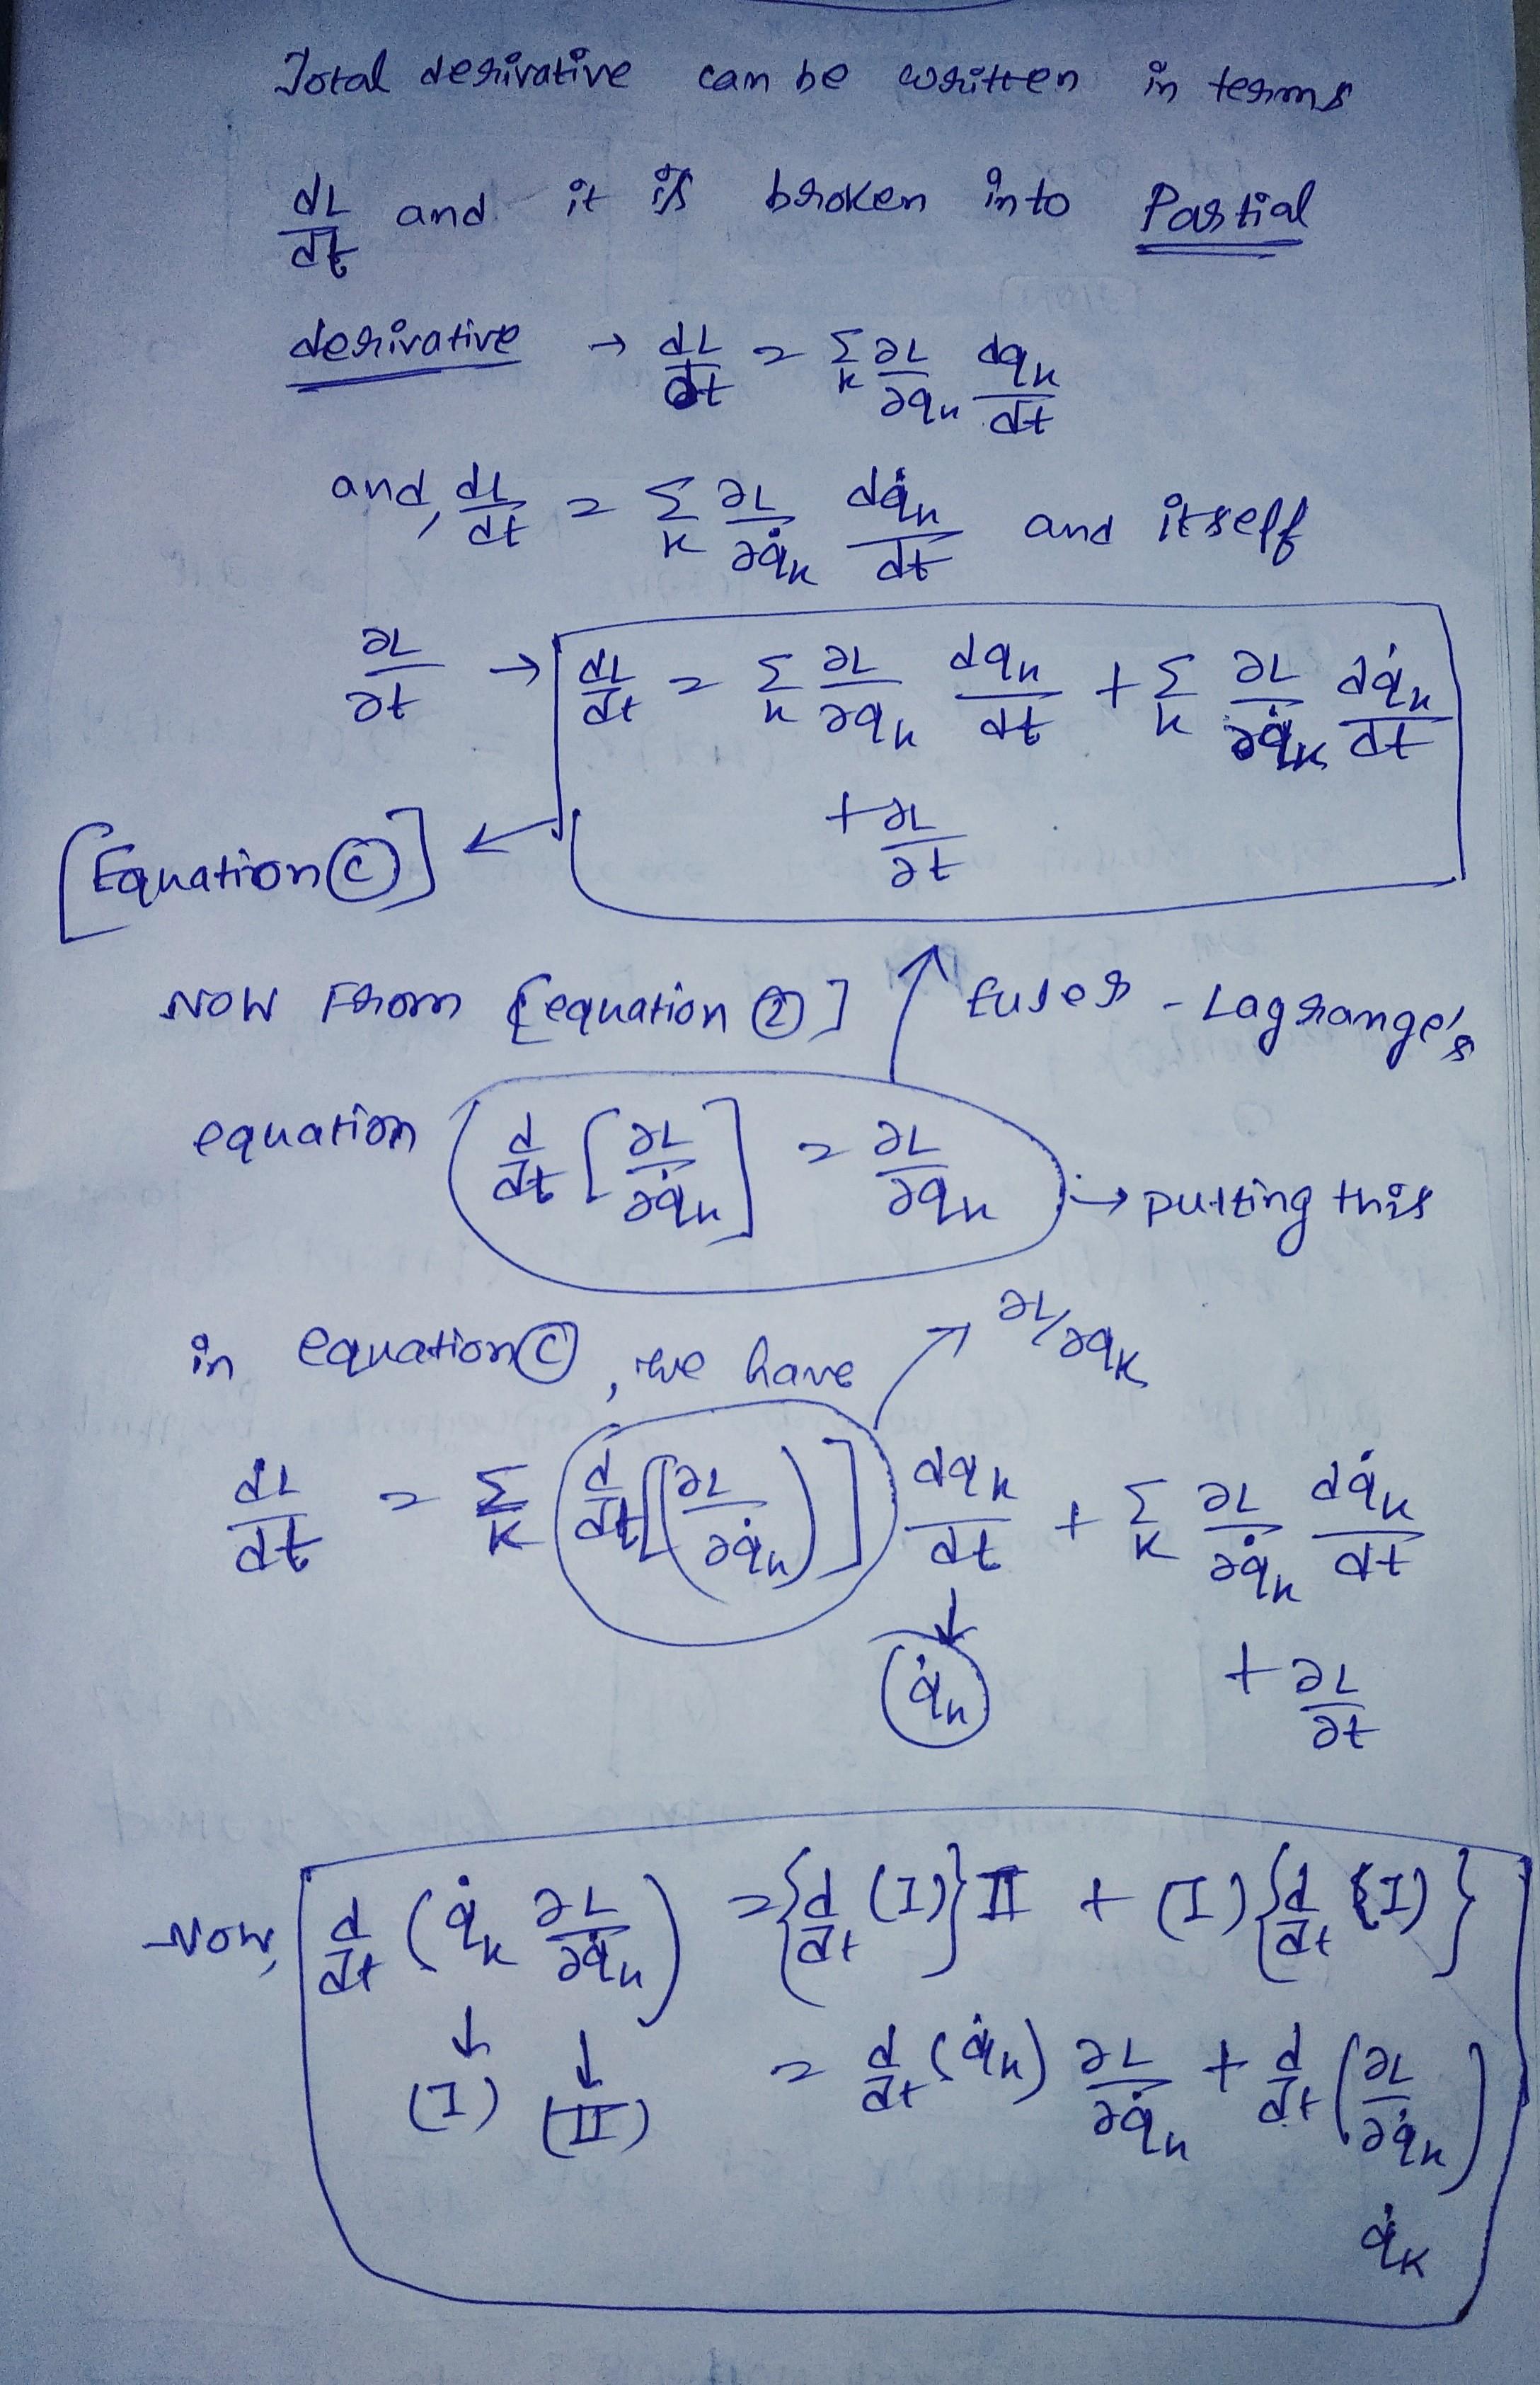 Total derivative can be written in terms
dL/dt and it is broken into Partial
derivative → dL/dt = Σ_k ∂L/∂q_k dq_k/dt
and, dL/dt = Σ_k ∂L/∂q̇_k dq̇_k/dt and itself
∂L/∂t → dL/dt = Σ_k ∂L/∂q_k dq_k/dt + Σ_k ∂L/∂q̇_k dq̇_k/dt
+ ∂L/∂t
[Equation (C)] ←
NOW From [equation (2)] Euler - Lagrange's
equation d/dt [∂L/∂q̇_k] = ∂L/∂q_k → putting this
in equation (C), we have → ∂L/∂q_k
dL/dt = Σ_k d/dt [(∂L/∂q̇_k)] dq_k/dt + Σ_k ∂L/∂q̇_k dq̇_k/dt
↓
(q̇_k) + ∂L/∂t
Now, d/dt (q̇_k ∂L/∂q̇_k) = {d/dt (I)} II + (I) {d/dt (I)}
↓ ↓
(I) (II) = d/dt (q̇_k) ∂L/∂q̇_k + d/dt (∂L/∂q̇_k)
q̇_k